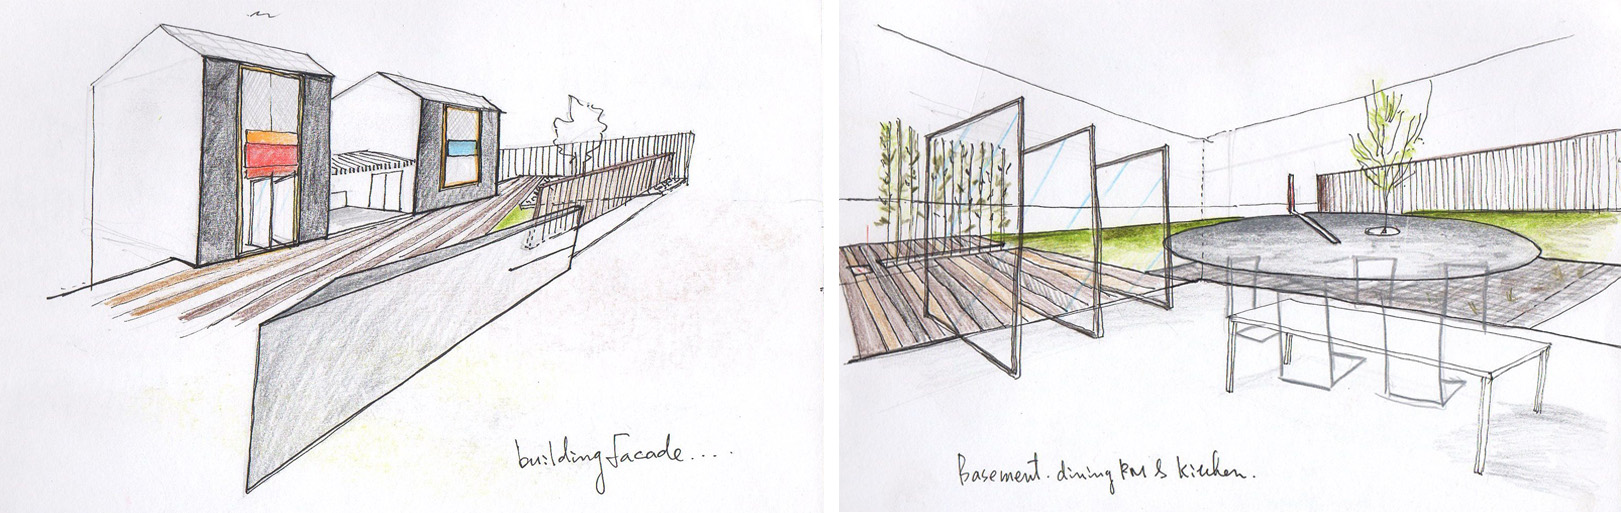 building facade....
Basement. dining RM & kitchen.